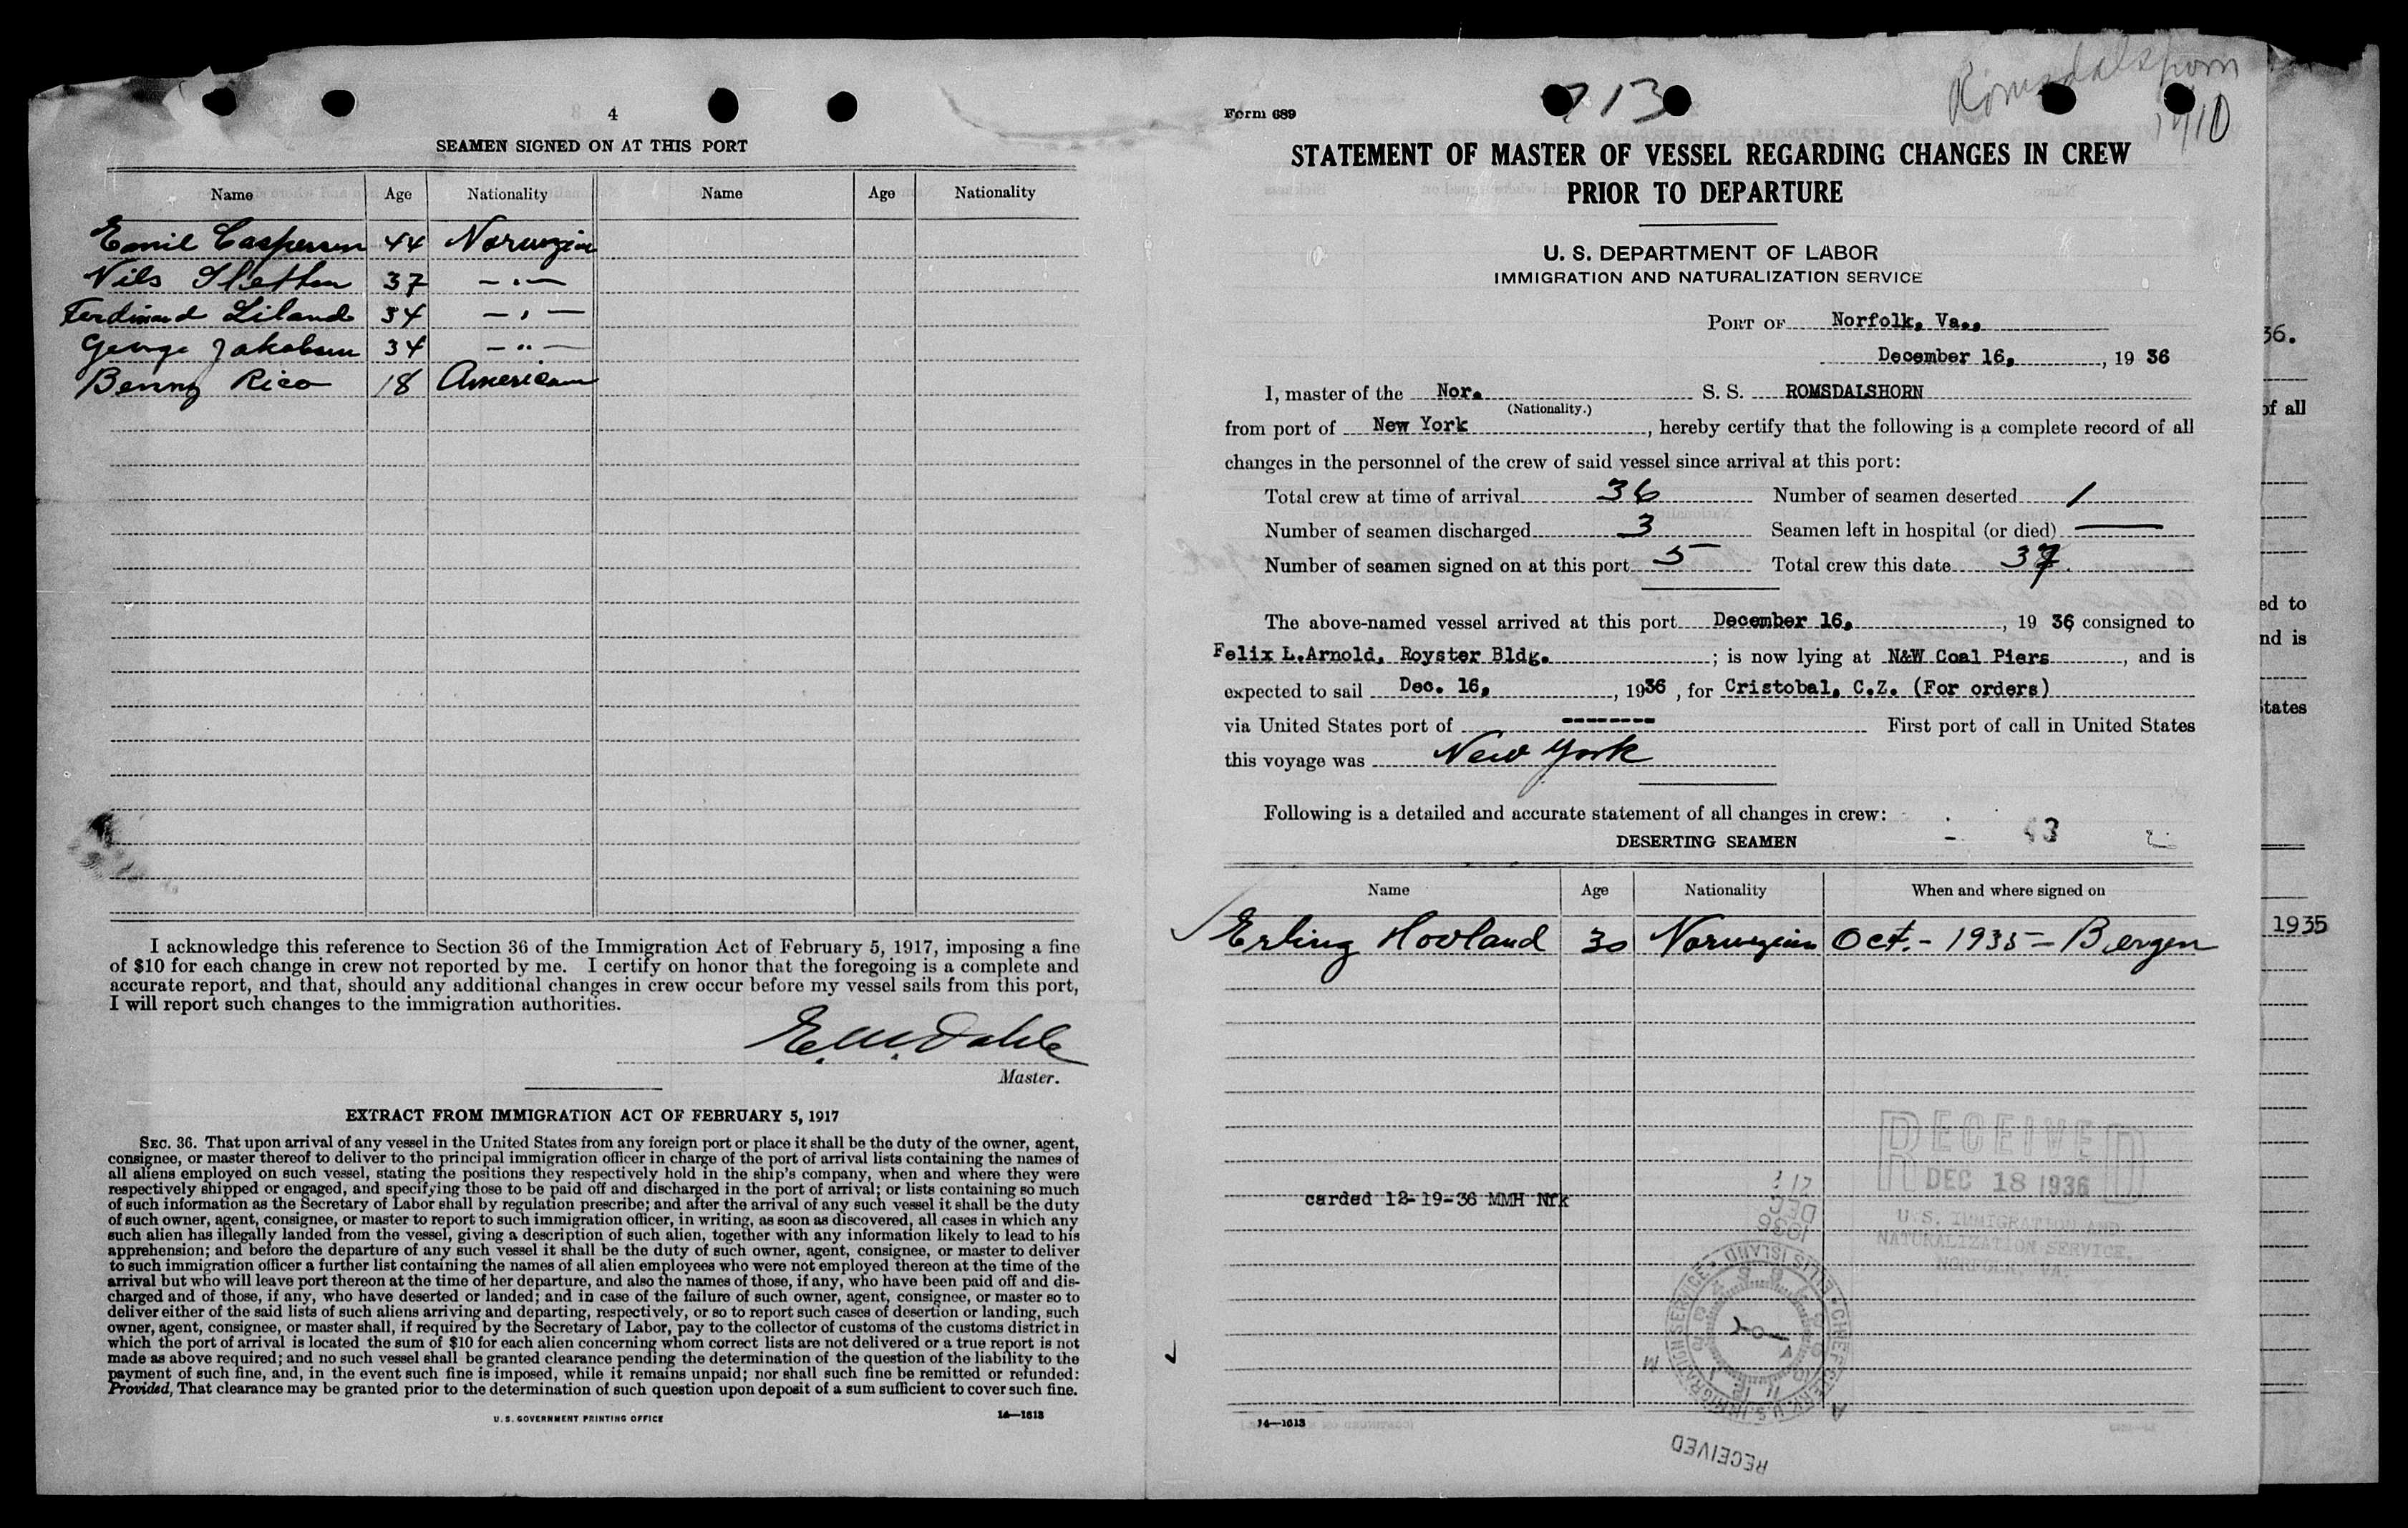 4
SEAMEN SIGNED ON AT THIS PORT
Name Age Nationality Name Age Nationality
Emil Caspersen 44 Norwegian
Nils 37 — . —
Ferdinand Liland 34 — , —
George Jakobsen 34 — .. —
Benny Rico 18 American
I acknowledge this reference to Section 36 of the Immigration Act of February 5, 1917, imposing a fine
of $10 for each change in crew not reported by me. I certify on honor that the foregoing is a complete and
accurate report, and that, should any additional changes in crew occur before my vessel sails from this port,
I will report such changes to the immigration authorities.
E. M. Dahle
Master.
EXTRACT FROM IMMIGRATION ACT OF FEBRUARY 5, 1917
SEC. 36. That upon arrival of any vessel in the United States from any foreign port or place it shall be the duty of the owner, agent,
consignee, or master thereof to deliver to the principal immigration officer in charge of the port of arrival lists containing the names of
all aliens employed on such vessel, stating the positions they respectively hold in the ship's company, when and where they were
respectively shipped or engaged, and specifying those to be paid off and discharged in the port of arrival; or lists containing so much
of such information as the Secretary of Labor shall by regulation prescribe; and after the arrival of any such vessel it shall be the duty
of such owner, agent, consignee, or master to report to such immigration officer, in writing, as soon as discovered, all cases in which any
such alien has illegally landed from the vessel, giving a description of such alien, together with any information likely to lead to his
apprehension; and before the departure of any such vessel it shall be the duty of such owner, agent, consignee, or master to deliver
to such immigration officer a further list containing the names of all alien employees who were not employed thereon at the time of the
arrival but who will leave port thereon at the time of her departure, and also the names of those, if any, who have been paid off and dis-
charged and of those, if any, who have deserted or landed; and in case of the failure of such owner, agent, consignee, or master so to
deliver either of the said lists of such aliens arriving and departing, respectively, or so to report such cases of desertion or landing, such
owner, agent, consignee, or master shall, if required by the Secretary of Labor, pay to the collector of customs of the customs district in
which the port of arrival is located the sum of $10 for each alien concerning whom correct lists are not delivered or a true report is not
made as above required; and no such vessel shall be granted clearance pending the determination of the question of the liability to the
payment of such fine, and, in the event such fine is imposed, while it remains unpaid; nor shall such fine be remitted or refunded:
Provided, That clearance may be granted prior to the determination of such question upon deposit of a sum sufficient to cover such fine.
U. S. GOVERNMENT PRINTING OFFICE 14—1613
Form 689
713
Romsdalshorn
1410
STATEMENT OF MASTER OF VESSEL REGARDING CHANGES IN CREW
PRIOR TO DEPARTURE
U. S. DEPARTMENT OF LABOR
IMMIGRATION AND NATURALIZATION SERVICE
PORT OF Norfolk, Va.,
December 16, , 19 36
I, master of the Nor. S. S. ROMSDALSHORN
(Nationality.)
from port of New York , hereby certify that the following is a complete record of all
changes in the personnel of the crew of said vessel since arrival at this port:
Total crew at time of arrival 36 Number of seamen deserted 1
Number of seamen discharged 3 Seamen left in hospital (or died) —
Number of seamen signed on at this port 5 Total crew this date 37.
The above-named vessel arrived at this port December 16, , 19 36, consigned to
Felix L.Arnold, Royster Bldg. ; is now lying at N&W Coal Piers , and is
expected to sail Dec. 16, , 1936 , for Cristobal, C.Z. (For orders)
via United States port of -------- First port of call in United States
this voyage was New York
Following is a detailed and accurate statement of all changes in crew:
DESERTING SEAMEN
43
Name Age Nationality When and where signed on
Erling Hovland 30 Norwegian Oct. - 1935 - Bergen
carded 12-19-36 MMH Nrk
RECEIVED
DEC 18 1936
U. S. IMMIGRATION AND
NATURALIZATION SERVICE.
NORFOLK, VA.
DEC
1936
CHIEF CLERK U.S. IMMIGRATION SERVICE • ELLIS ISLAND
RECEIVED
14—1613
36.
of all
ed to
nd is
States
1935